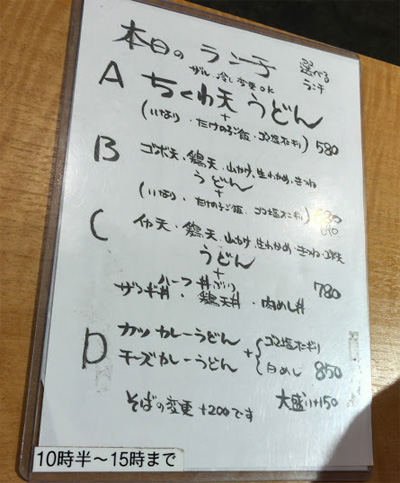 本日の ランチ
選べるランチ
ザル、冷し変更OK
A ちくわ天 うどん
+
(いなり・たけの子ご飯・ゴマ塩おにぎり) 580
B ゴボ天・鶏天・山かけ・生わかめ・きつね
うどん
+
(いなり・たけの子ご飯・ゴマ塩おにぎり)
C イカ天・鶏天・山かけ・生わかめ・きつね・ゴボ天
うどん
+
ハーフ丼ぶり 780
ザンギ丼・鶏天丼・肉めし丼
D カツカレーうどん
チーズカレーうどん
+ { ゴマ塩おにぎり
白めし 850
そばの変更 +200です
大盛り+150
10時半〜15時まで